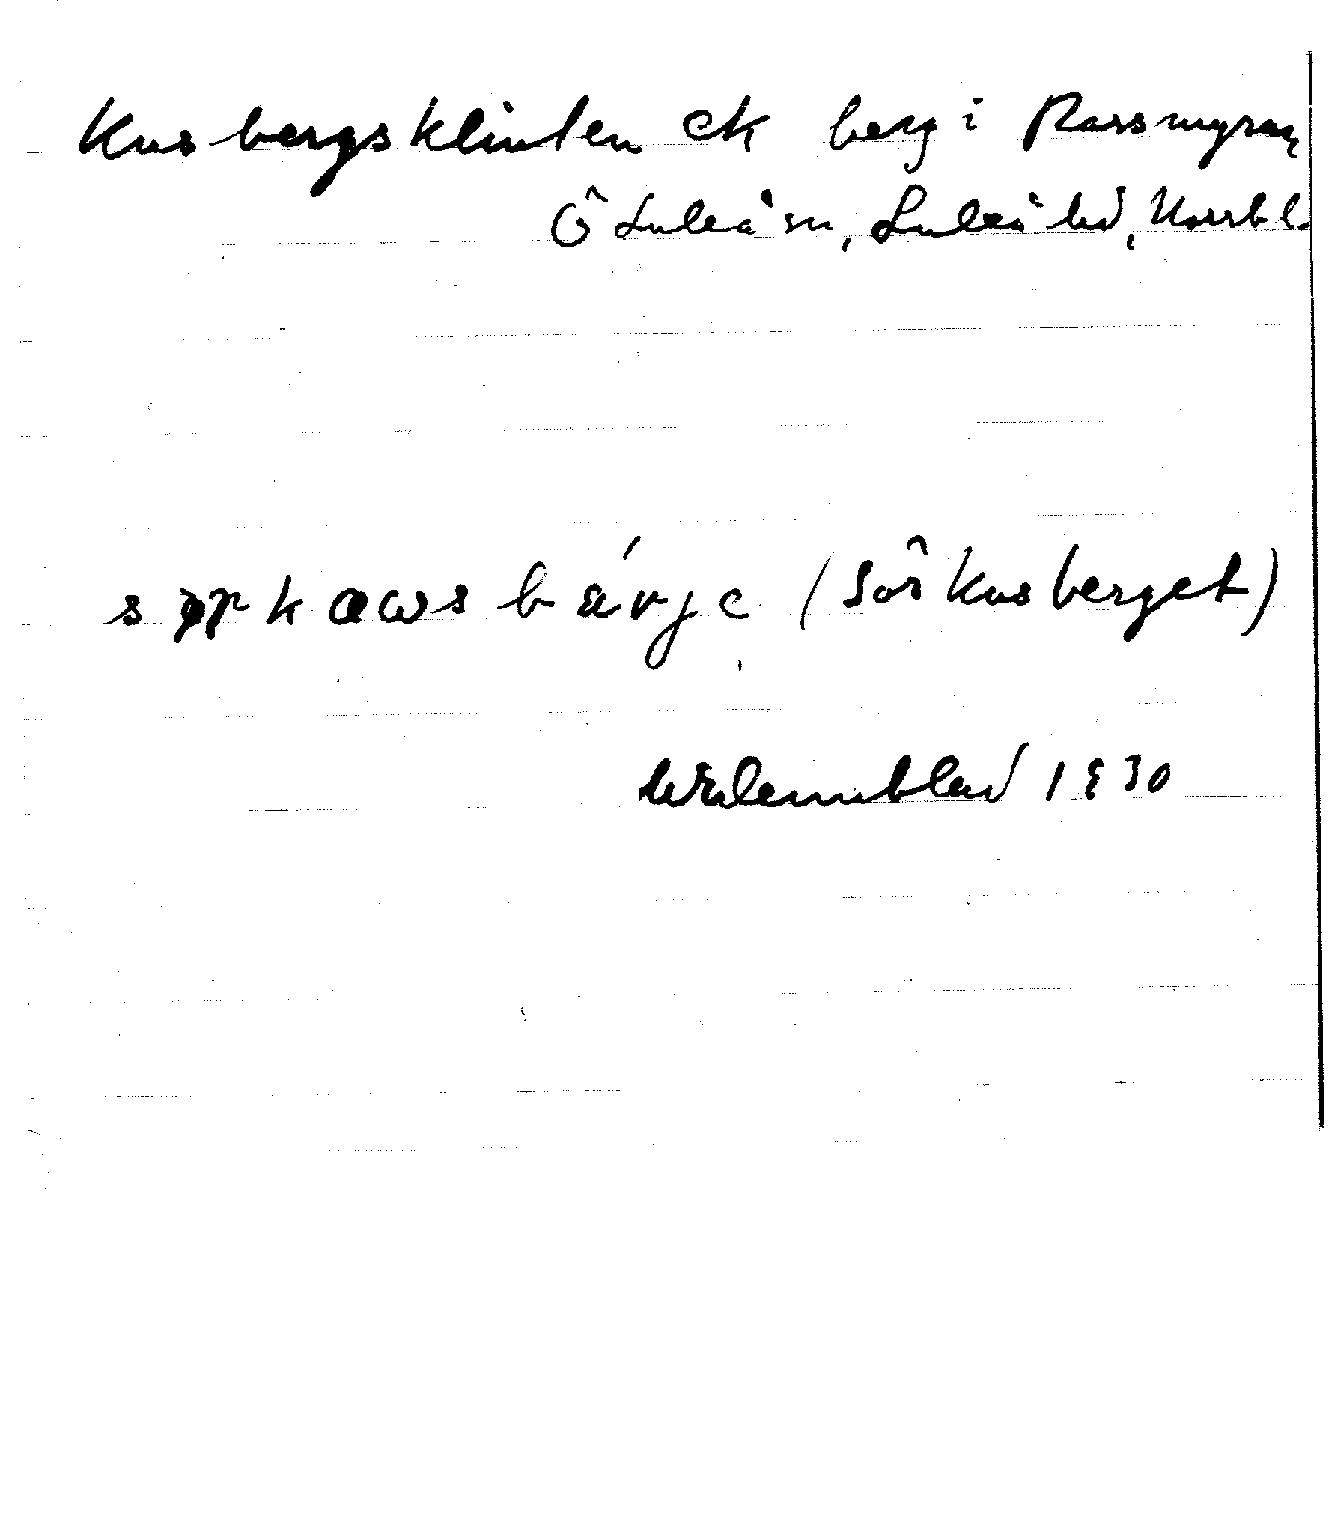 Kusbergsklinten ek berg i Rassmyran,
Ö Luleå sn, Luleå hd, Norrb l.
kæωs bávjc (Sör Kusberget)
Wilennblad 1930